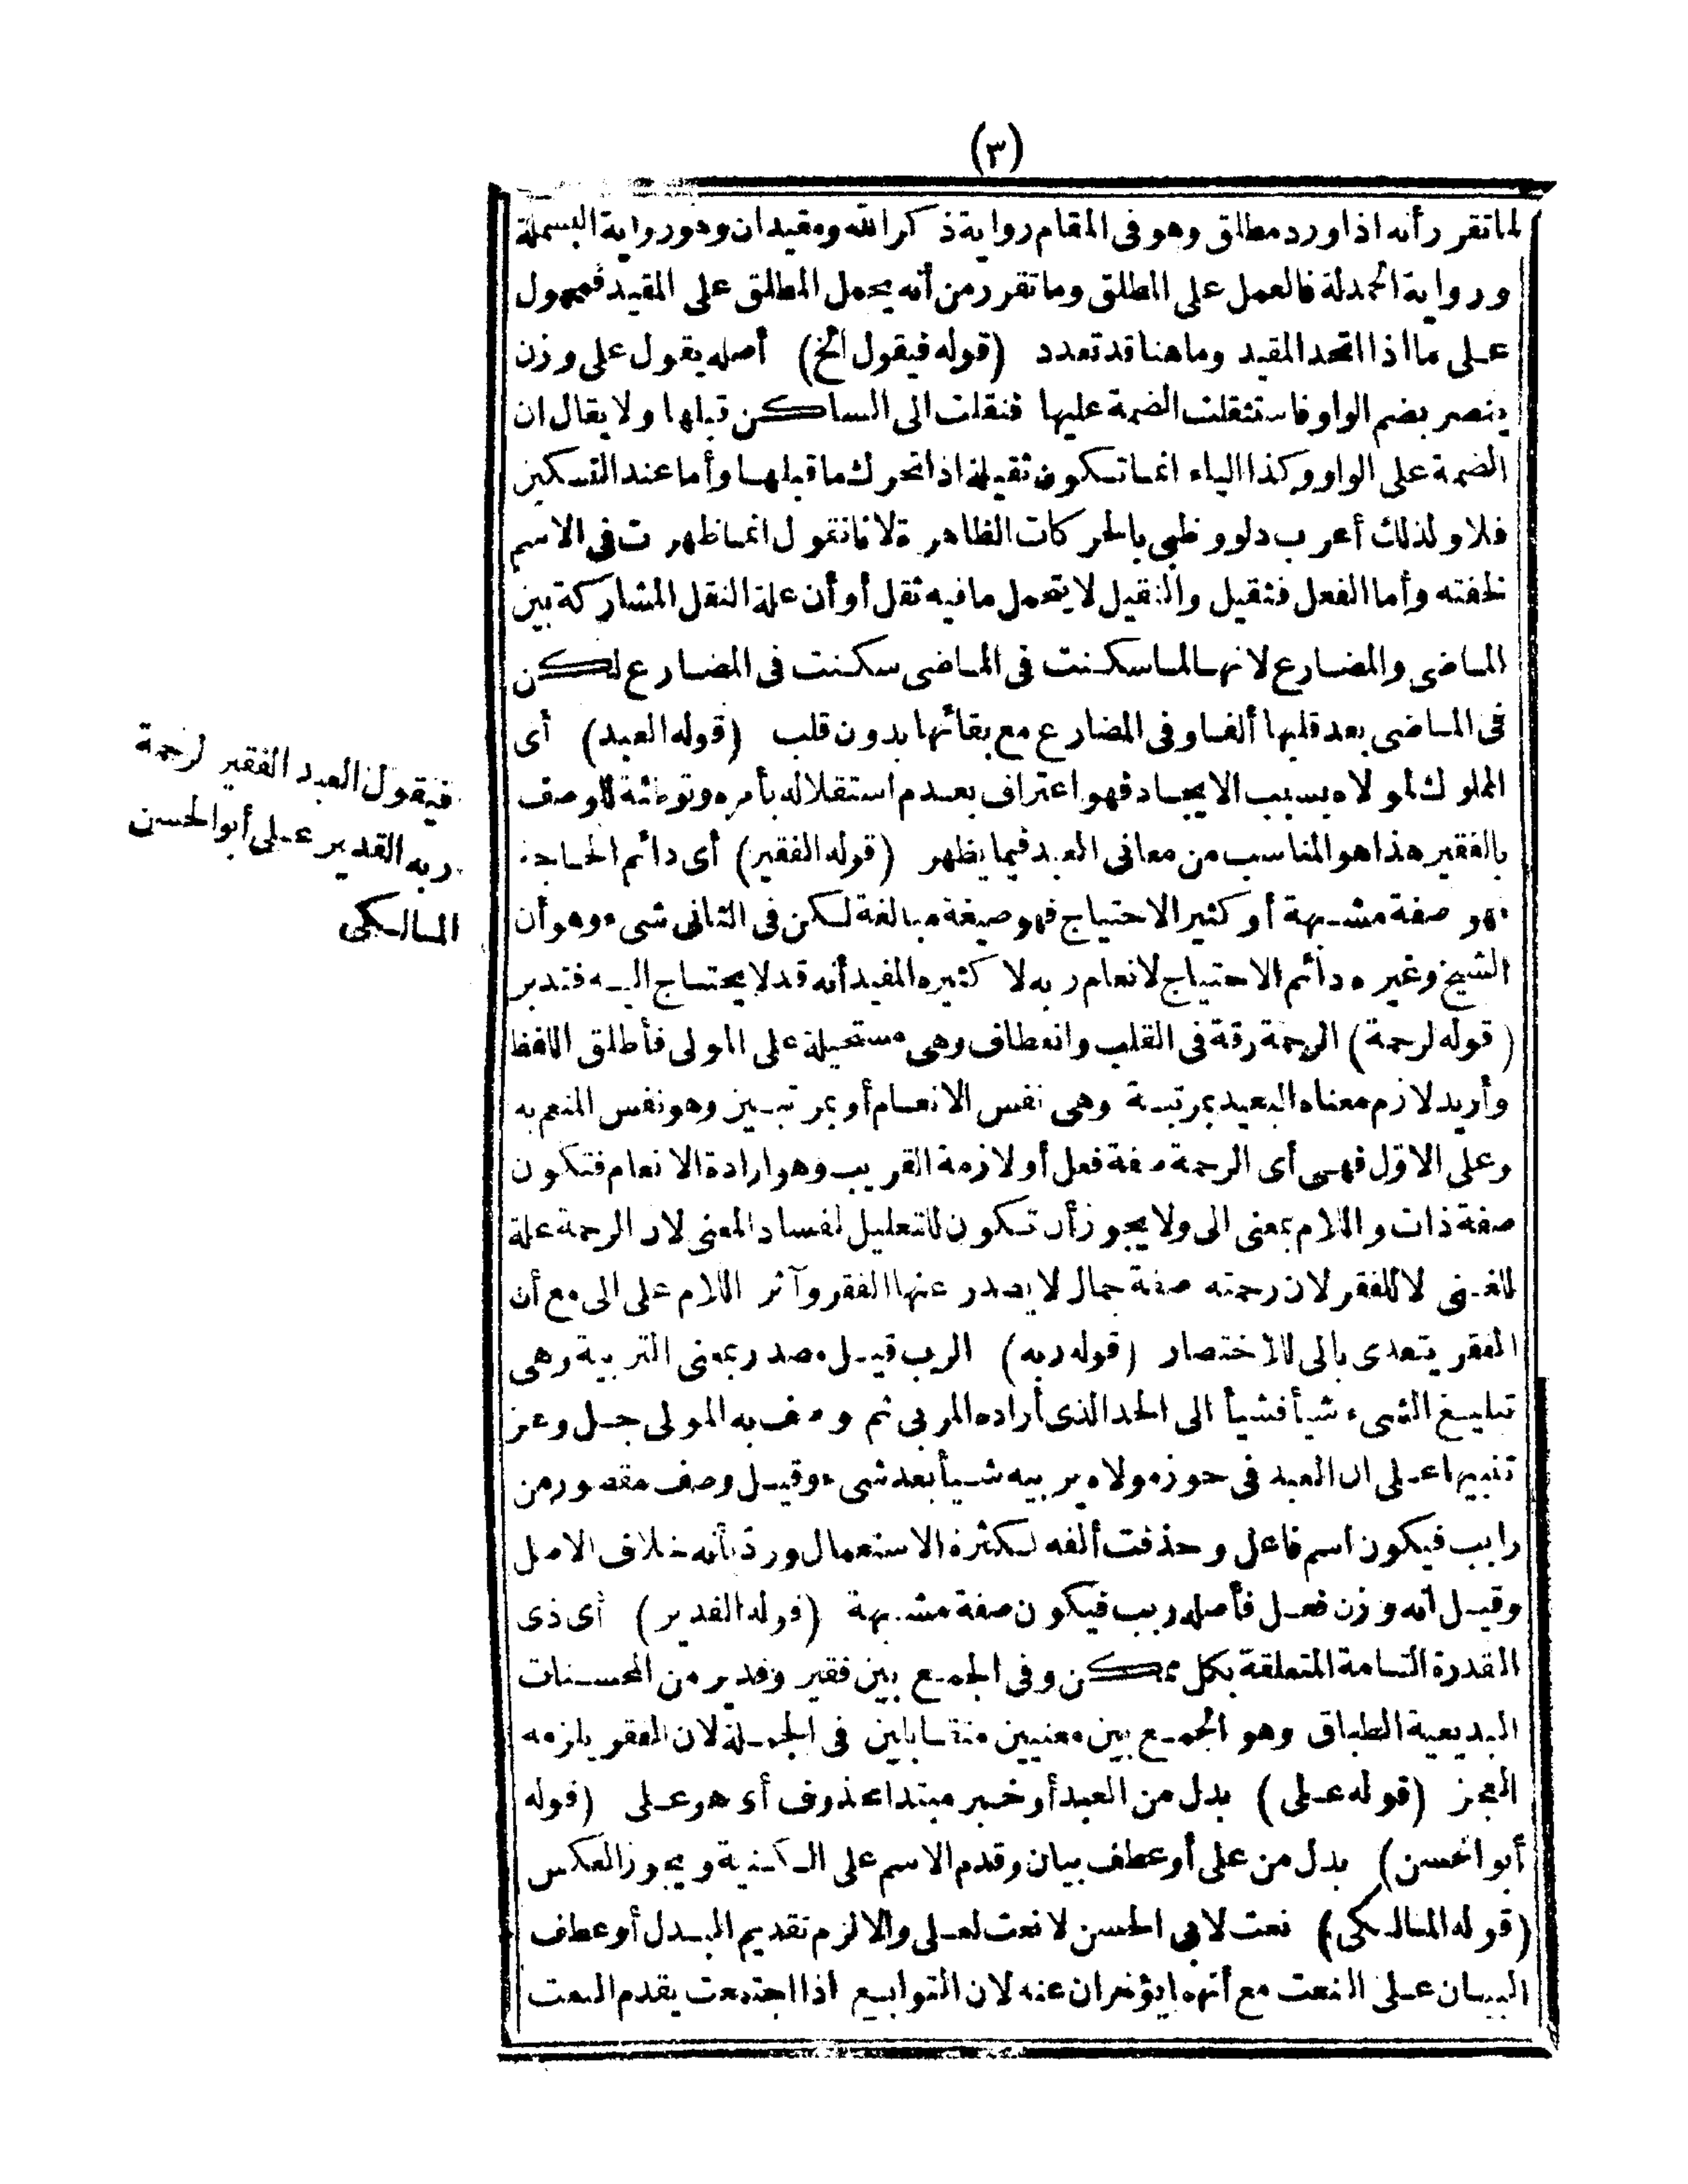 (٣)
لما تقرر أنه اذا ورد مطلق وهو فى المقام رواية ذكر الله ومقيدان وهو رواية البسملة
ورواية الحمدلة فالعمل على المطلق وما تقرر من أنه يحمل المطلق على المقيد فمحمول
على ما اذا اتحد المقيد وما هنا قد تعدد (قوله فيقول الخ) أصله يقول على وزن
ينصر بضم الواو فاستثقلت الضمة عليها فنقلت الى الساكن قبلها ولا يقال ان
الضمة على الواو وكذا الياء انما تكون ثقيلة اذا تحرك ما قبلها وأما عند التسكين
فلا ولذلك أعرب دلو وظبى بالحركات الظاهرة لانا نقول انما ظهرت فى الاسم
لخفته وأما الفعل فثقيل والثقيل لا يتحمل ما فيه ثقل أو أن علة النقل المشاركة بين
الماضى والمضارع لانها لما سكنت فى الماضى سكنت فى المضارع لكن
فى الماضى بعد قلبها ألفا وفى المضارع مع بقائها بدون قلب (قوله العبد) أى
المملوك لمولاه بسبب الايجاد فهو اعتراف بعدم استقلاله بأمره وتوطئة للوصف
بالفقير هذا هو المناسب من معانى العبد فيما يظهر (قوله الفقير) أى دائم الحاجة
فهو صفة مشبهة أو كثير الاحتياج فهو صيغة مبالغة لكن فى الثانى شىء وهو أن
الشيخ وغيره دائم الاحتياج لانعام ربه لا كثيره المفيد أنه قد لا يحتاج اليه فتدبر
(قوله لرحمة) الرحمة رقة فى القلب وانعطاف وهى مستحيلة على المولى فأطلق اللفظ
وأريد لازم معناه البعيد بمرتبة وهى نفس الانعام أو بمرتبتين وهو نفس المنعم به
وعلى الاوّل فهى أى الرحمة صفة فعل أو لازمة القريب وهو ارادة الانعام فتكون
صفة ذات واللام بمعنى الى ولا يجوز أن تكون للتعليل لفساد المعنى لان الرحمة علة
للغنى لا للفقر لان رحمته صفة جمال لا يصدر عنها الفقر وآثر اللام على الى مع أن
الفقر يتعدى بالى للاختصار (قوله ربه) الرب قيل مصدر بمعنى التربية وهى
تبليغ الشىء شيأ فشيأ الى الحد الذى أراده المربى ثم وصف به المولى جل وعز
تنبيها على ان العبد فى حوز مولاه يربيه شيأ بعد شىء وقيل وصف مقصور من
رابب فيكون اسم فاعل وحذفت ألفه لكثرة الاستعمال وردّ بأنه خلاف الاصل
وقيل انه وزن فعل فأصله ربب فيكون صفة مشبهة (قوله القدير) أى ذى
القدرة التامة المتعلقة بكل ممكن وفى الجمع بين فقير وقدير من المحسنات
البديعية الطباق وهو الجمع بين معنيين متقابلين فى الجملة لان الفقر يلزمه
العجز (قوله على) بدل من العبد أو خبر مبتدا محذوف أى هو على (قوله
أبو الحسن) بدل من على أو عطف بيان وقدم الاسم على الكنية ويجوز العكس
(قوله المالكى) نعت لابى الحسن لا نعت لعلى والا لزم تقديم البدل أو عطف
البيان على النعت مع أنهما يؤخران عنه لان التوابع اذا اجتمعت يقدم النعت
فيقول العبد الفقير لرحمة
ربه القدير على أبو الحسن
المالكى